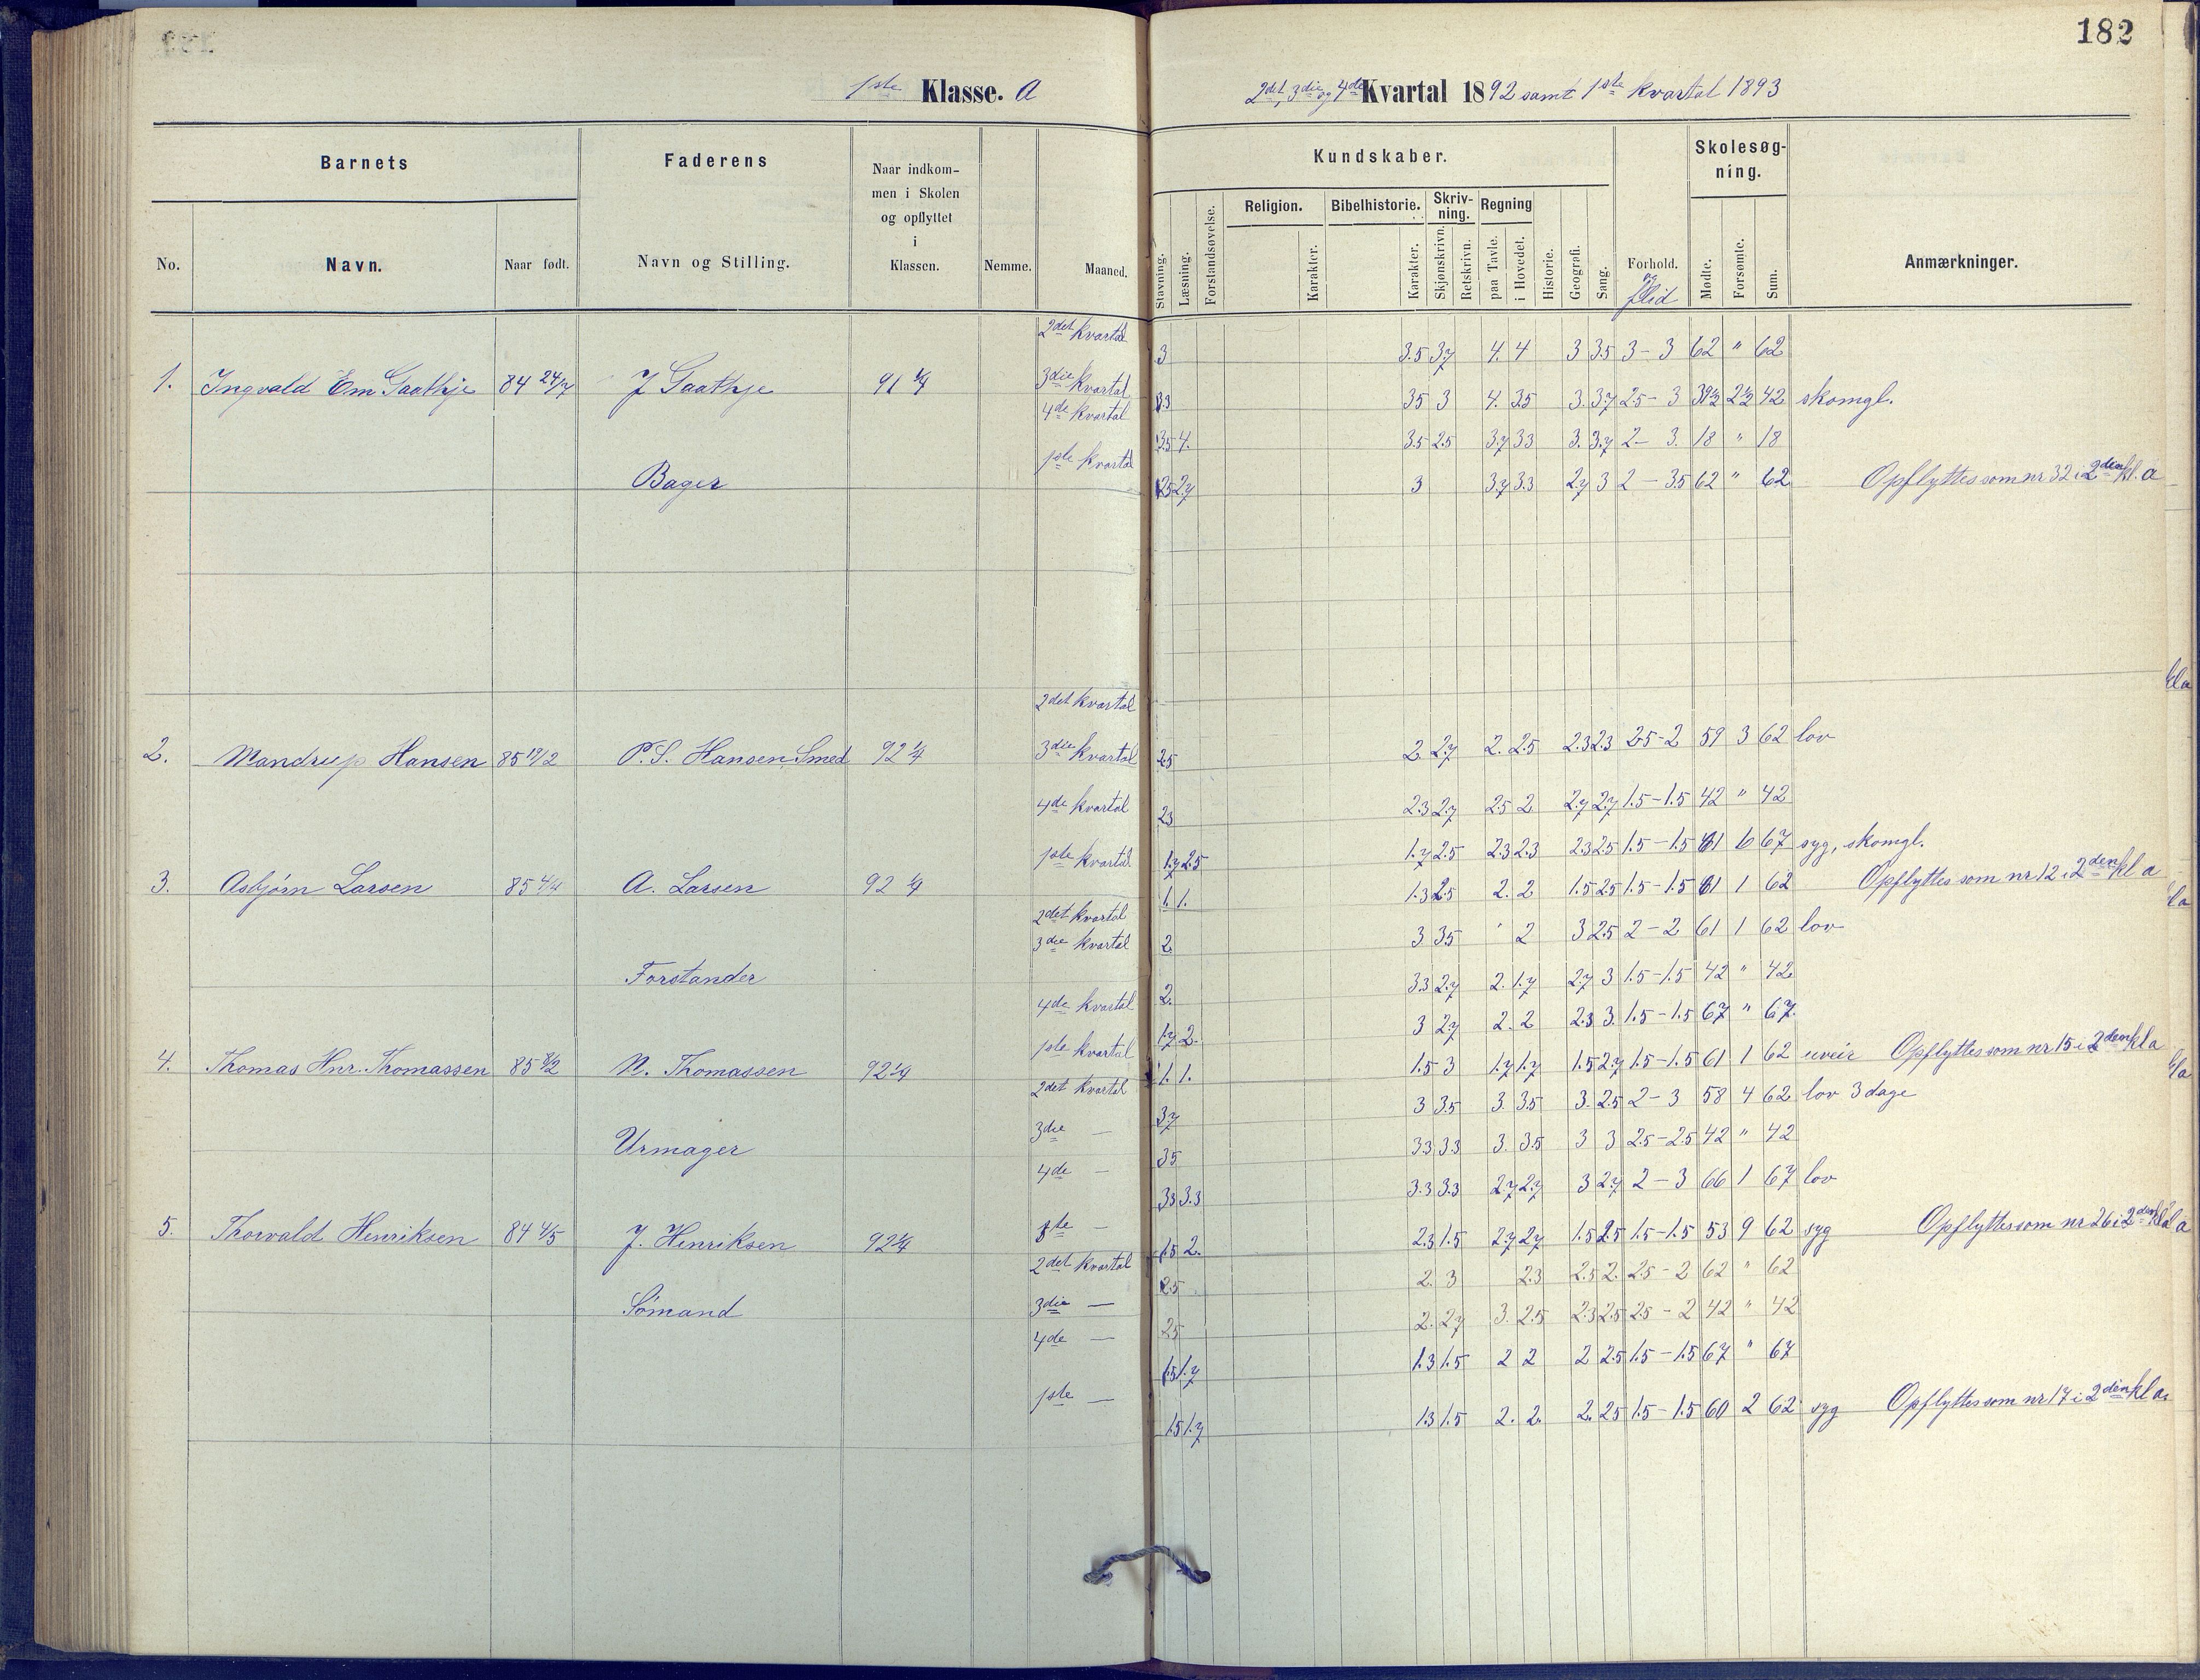 182
1ste Klasse. A
2det, 3die og 4de Kvartal 1892 samt 1ste kvartal 1893
Barnets
Faderens
Naar indkommen i Skolen og opflyttet i Klassen.
Kundskaber.
Skolesøgning.
No.
Navn.
Naar født.
Navn og Stilling.
Nemme.
Maaned.
Stavning.
Læsning.
Forstandsøvelse.
Religion.
Karakter.
Bibelhistorie.
Karakter.
Skrivning.
Skjønskrivn.
Retskrivn.
Regning
paa Tavle.
i Hovedet.
Historie.
Geografi.
Sang.
Forhold.
og flid
Mødte.
Forsømte.
Sum.
Anmærkninger.
2det kvartal 3 3.5 3.7 4. 4 3 3.5 3-3 62 " 62
1. Ingvald Em Gaathje 84 24/7 J Gaathje 91 1/4 3die kvartal 3 3.5 3 4. 3.5 3. 3.7 2.5-3 39½ 2½ 42 skomgl.
4de kvartal 3.5 4. 3.5 2.5 3.7 3.3 3. 3.7 2-3. 18 " 18
Bager 1ste kvartal 2.5 2.7 3 3.7 3.3 2.7 3 2-3.5 62 " 62 Opflyttes som nr 32 i 2den kl. a
2det kvartal 2.5 2 2.7 2. 2.5 2.3 2.3 2.5-2 59 3 62 lov
2. Mandrup Hansen 85 19/2 P. S. Hansen Smed 92 1/4 3die kvartal 2.3 2.3 2.7 2.5 2 2.7 2.7 1.5-1.5 42 " 42
4de kvartal 1.7 2.5 1.7 2.5 2.3 2.3 2.3 2.5 1.5-1.5 61 6 67 syg, skomgl.
1ste kvartal 1. 1. 1.3 2.5 2. 2 1.5 2.5 1.5-1.5 61 1 62 Opflyttes som nr 12 i 2den kl a
3. Asbjørn Larsen 85 4/4 A. Larsen 92 1/4
2det kvartal 2. 3 3.5 2 3 2.5 2-2 61 1 62 lov
3die kvartal 2. 3.3 2.7 2. 1.7 2.7 3 1.5-1.5 42 " 42
Forstander
4de kvartal 1.7 2. 3 2.7 2. 2 2.3 3. 1.5-1.5 67 " 67.
1ste kvartal 1. 1. 1.5 3 1.7 1.7 1.5 2.7 1.5-1.5 61 1 62 uveir Opflyttes som nr 15 i 2den kl a
4. Thomas Hnr. Thomassen 85 8/2 N. Thomassen 92 1/4
2det kvartal 3.7 3 3.5 3. 3.5 3. 2.5 2-3 58 4 62 lov 3 dage
3die — 3.5 3.3 3.3 3. 3.5 3 3 2.5-2.5 42 " 42
Urmager
4de — 3.3 3.3 3.3 3.3 2.7 2.7 3 2.7 2-3 66 1 67 lov
1ste — 1.5 2. 2.3 1.5 2.7 2.7 1.5 2.5 1.5-1.5 53 9 62 syg Opflyttes som nr 26 i 2den kl a
5. Thorvald Henriksen 84 4/5 J. Henriksen 92 1/4
2det kvartal 2.5 2. 3 2.3 2.5 2. 2.5-2 62 " 62
Sømand 3die — 2.5 2. 2.7 3. 2.5 2.3 2.5 2.5-2 42 " 42
4de — 1.5 1.7 1.3 1.5 2 2 2 2.5 1.5-1.5 67 " 67
1ste — 1.5 1.7 1.3 1.5 2. 2. 2. 2.5 1.5-1.5 60 2 62 syg Opflyttes som nr 17 i 2den kl a.